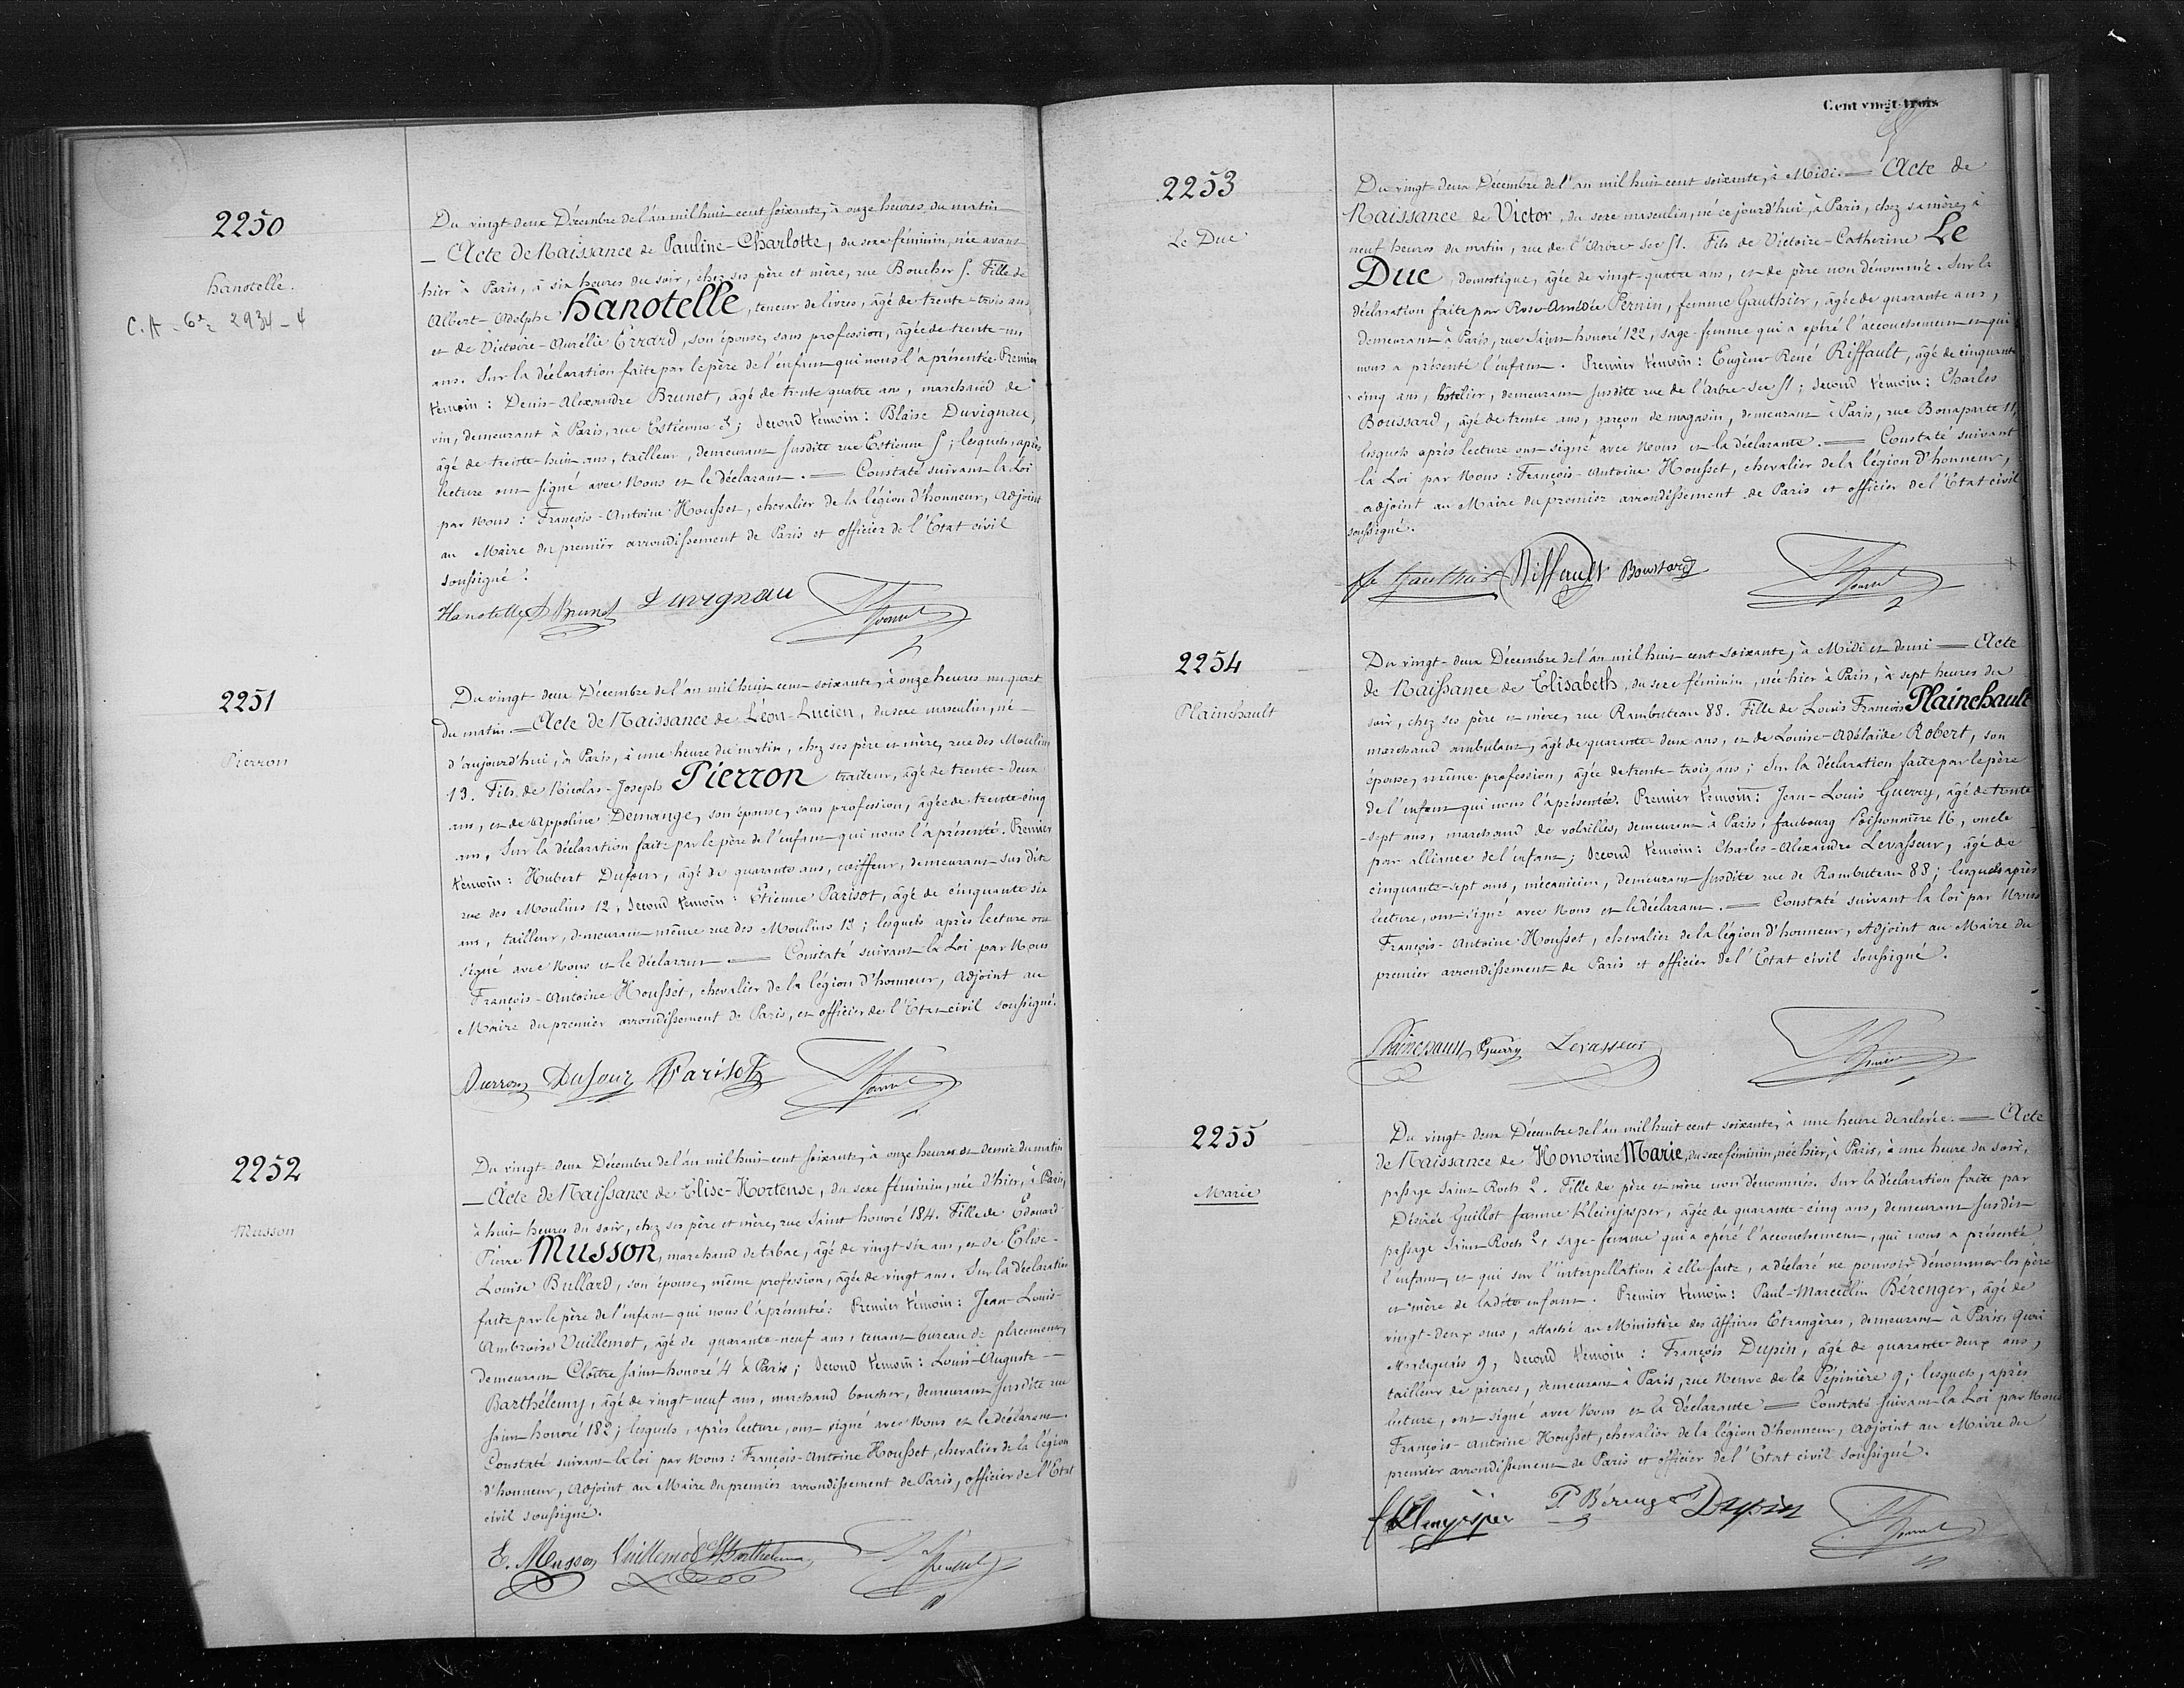 2250
hanotelle.
C. A - 6e = 2934 - 4
Du vingt-deux Décembre de l'an mil huit cent soixante, à onze heures du matin
— Acte de Naissance de Pauline-Charlotte, du sexe féminin, née avant
hier à Paris, à six heures du soir, chez ses père et mère, rue Boucher 5. Fille de
Albert-Adolphe hanotelle, teneur de livres, âgé de trente-trois ans
et de Victoire-Aurélie Errard, son épouse, sans profession, âgée de trente-un
ans. Sur la déclaration faite par le père de l'enfant qui nous l'a présentée. Premier
témoin : Denis-Alexandre Brunet, âgé de trente quatre ans, marchand de
vin, demeurant à Paris, rue Estienne 5; Second témoin : Blaise Duvignau,
âgé de trente-huit ans, tailleur, demeurant susdite rue Estienne 5; lesquels, après
lecture ont signé avec Nous et le déclarant. — Constaté suivant la Loi
par Nous : François-Antoine Housset, chevalier de la légion d'honneur, Adjoint
au Maire du premier arrondissement de Paris et officier de l'Etat civil
soussigné.
Hanotelle Brunet Duvignau
2251
Pierron
Du vingt-deux Décembre de l'an mil huit cent soixante, à onze heures un quart
du matin. — Acte de Naissance de Léon-Lucien, du sexe masculin, né
d'aujourd'hui, à Paris, à une heure du matin, chez ses père et mère, rue des Moulins
13. Fils de Nicolas-Joseph Pierron traiteur, âgé de trente-deux
ans, et de Appoline Demange, son épouse, sans profession, âgée de trente-cinq
ans. Sur la déclaration faite par le père de l'enfant qui nous l'a présenté. Premier
témoin : Hubert Dufour, âgé de quarante ans, coiffeur, demeurant susdite
rue des Moulins 12, Second témoin : Etienne Parisot, âgé de cinquante six
ans, tailleur, demeurant même rue des Moulins 13; lesquels après lecture ont
signé avec Nous et le déclarant — Constaté suivant la Loi par Nous
François-Antoine Housset, chevalier de la légion d'honneur, Adjoint au
Maire du premier arrondissement de Paris, et officier de l'Etat civil soussigné.
Pierron Dufour Parisot
2252
Musson
Du vingt-deux Décembre de l'an mil huit cent soixante, à onze heures et demie du matin
— Acte de Naissance de Elise-Hortense, du sexe féminin, née d'hier, à Paris,
à huit heures du soir, chez ses père et mère, rue Saint honoré 184. Fille de Edouard-
Pierre Musson, marchand de tabac, âgé de vingt-six ans, et de Elise-
Louise Bullard, son épouse, même profession, âgée de vingt ans. Sur la déclaration
faite par le père de l'enfant qui nous l'a présentée: Premier témoin : Jean-Louis-
Ambroise Vuillemot, âgé de quarante-neuf ans, tenant bureau de placement,
demeurant Cloître Saint-honoré 4 à Paris; Second témoin : Louis-Auguste —
Barthélemy, âgé de vingt-neuf ans, marchand boucher, demeurant susdite rue
Saint-honoré 182; lesquels, après lecture, ont signé avec Nous et le déclarant.
Constaté suivant la loi par Nous : François-Antoine Housset, chevalier de la légion
d'honneur, Adjoint au Maire du premier arrondissement de Paris, officier de l'Etat
civil soussigné.
E. Musson Vuillemot Barthélemy
Cent vingt-trois
2253
Le Duc
Du vingt-deux Décembre de l'an mil huit cent soixante, à Midi. — Acte de
Naissance de Victor, du sexe masculin, né ce jourd'hui, à Paris, chez sa mère, à
neuf heures du matin, rue de l'Arbre-Sec 51. Fils de Victoire-Catherine Le
Duc, domestique, âgée de vingt-quatre ans, et de père non dénommé. Sur la
déclaration faite par Rose-Amédée Pernin, femme Gauthier, âgée de quarante ans,
demeurant à Paris, rue Saint honoré 122, sage-femme qui a opéré l'accouchement et qui
nous a présenté l'enfant. Premier témoin : Eugène René Riffault, âgé de cinquante
cinq ans, hôtelier, demeurant susdite rue de l'Arbre-Sec 51; Second témoin : Charles
Boussard, âgé de trente ans, garçon de magasin, demeurant à Paris, rue Bonaparte 11,
lesquels après lecture ont signé avec Nous et la déclarante. — Constaté suivant
la Loi par Nous : François-Antoine Housset, chevalier de la légion d'honneur,
adjoint au Maire du premier arrondissement de Paris et officier de l'Etat civil
soussigné.
fe Gauthier Riffault Boussard
2254
Plainchault
Du vingt-deux Décembre de l'an mil huit cent soixante, à Midi et demi — Acte
de Naissance de Elisabeth, du sexe féminin, née hier à Paris, à sept heures du
soir, chez ses père et mère, rue Rambuteau 88. Fille de Louis François Plainchault
marchand ambulant, âgé de quarante-deux ans, et de Louise-Adélaïde Robert, son
épouse, même profession, âgée de trente-trois ans; Sur la déclaration faite par le père
de l'enfant qui nous l'a présentée. Premier témoin : Jean-Louis Guerry, âgé de trente
-sept ans, marchand de volailles, demeurant à Paris, faubourg Poissonnière 16, oncle
par alliance de l'enfant; Second témoin : Charles-Alexandre Levasseur, âgé de
cinquante-sept ans, mécanicien, demeurant susdite rue de Rambuteau 88; lesquels après
lecture, ont signé avec Nous et le déclarant. — Constaté suivant la loi par Nous
François-Antoine Housset, chevalier de la légion d'honneur, Adjoint au Maire du
premier arrondissement de Paris et officier de l'Etat civil soussigné.
Plainchault Guerry Levasseur
2255
Marie
Du vingt-deux Décembre de l'an mil huit cent soixante, à une heure de relevée. — Acte
de Naissance de Honorine Marie, du sexe féminin, née hier, à Paris, à une heure du soir,
passage Saint Roch 2. Fille de père et mère non dénommés. Sur la déclaration faite par
Désirée Guillot femme Kleinjasper, âgée de quarante-cinq ans, demeurant susdit
passage Saint Roch 2, sage-femme qui a opéré l'accouchement, qui nous a présenté
l'enfant, et qui sur l'interpellation à elle faite, a déclaré ne pouvoir dénommer les père
et mère de ladite enfant. Premier témoin : Paul-Marcellin Bérenger, âgé de
vingt-deux ans, attaché au Ministère des Affaires Etrangères, demeurant à Paris, quai
Malaquais 9, Second témoin : François Dupin, âgé de quarante-deux ans,
tailleur de pierres, demeurant à Paris, rue Neuve de la Pépinière 9; lesquels, après
lecture, ont signé avec Nous et la déclarante — Constaté suivant la Loi par Nous
François-Antoine Housset, chevalier de la légion d'honneur, Adjoint au Maire du
premier arrondissement de Paris et officier de l'Etat civil soussigné.
f Kleinjasper P. Bérenger Dupin